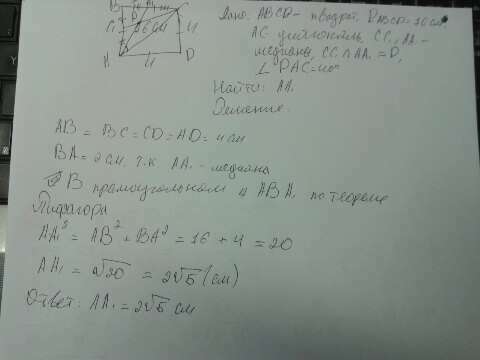 Дано: ABCD - квадрат, P ABCD = 16 см
AC CC₁, AA₁ -
медианы, CC₁ ∩ AA₁ = D,
Найти: AA₁
Решение:
AB = BC = CD = AD = 4 см
BA₁ = 2 см, т.к. AA₁ - медиана
В прямоугольном ABA₁ по теореме
Пифагора
AA₁² = AB² + BA² = 16 + 4 = 20
AA₁ = √20 = 2√5 (см)
Ответ: AA₁ = 2√5 см